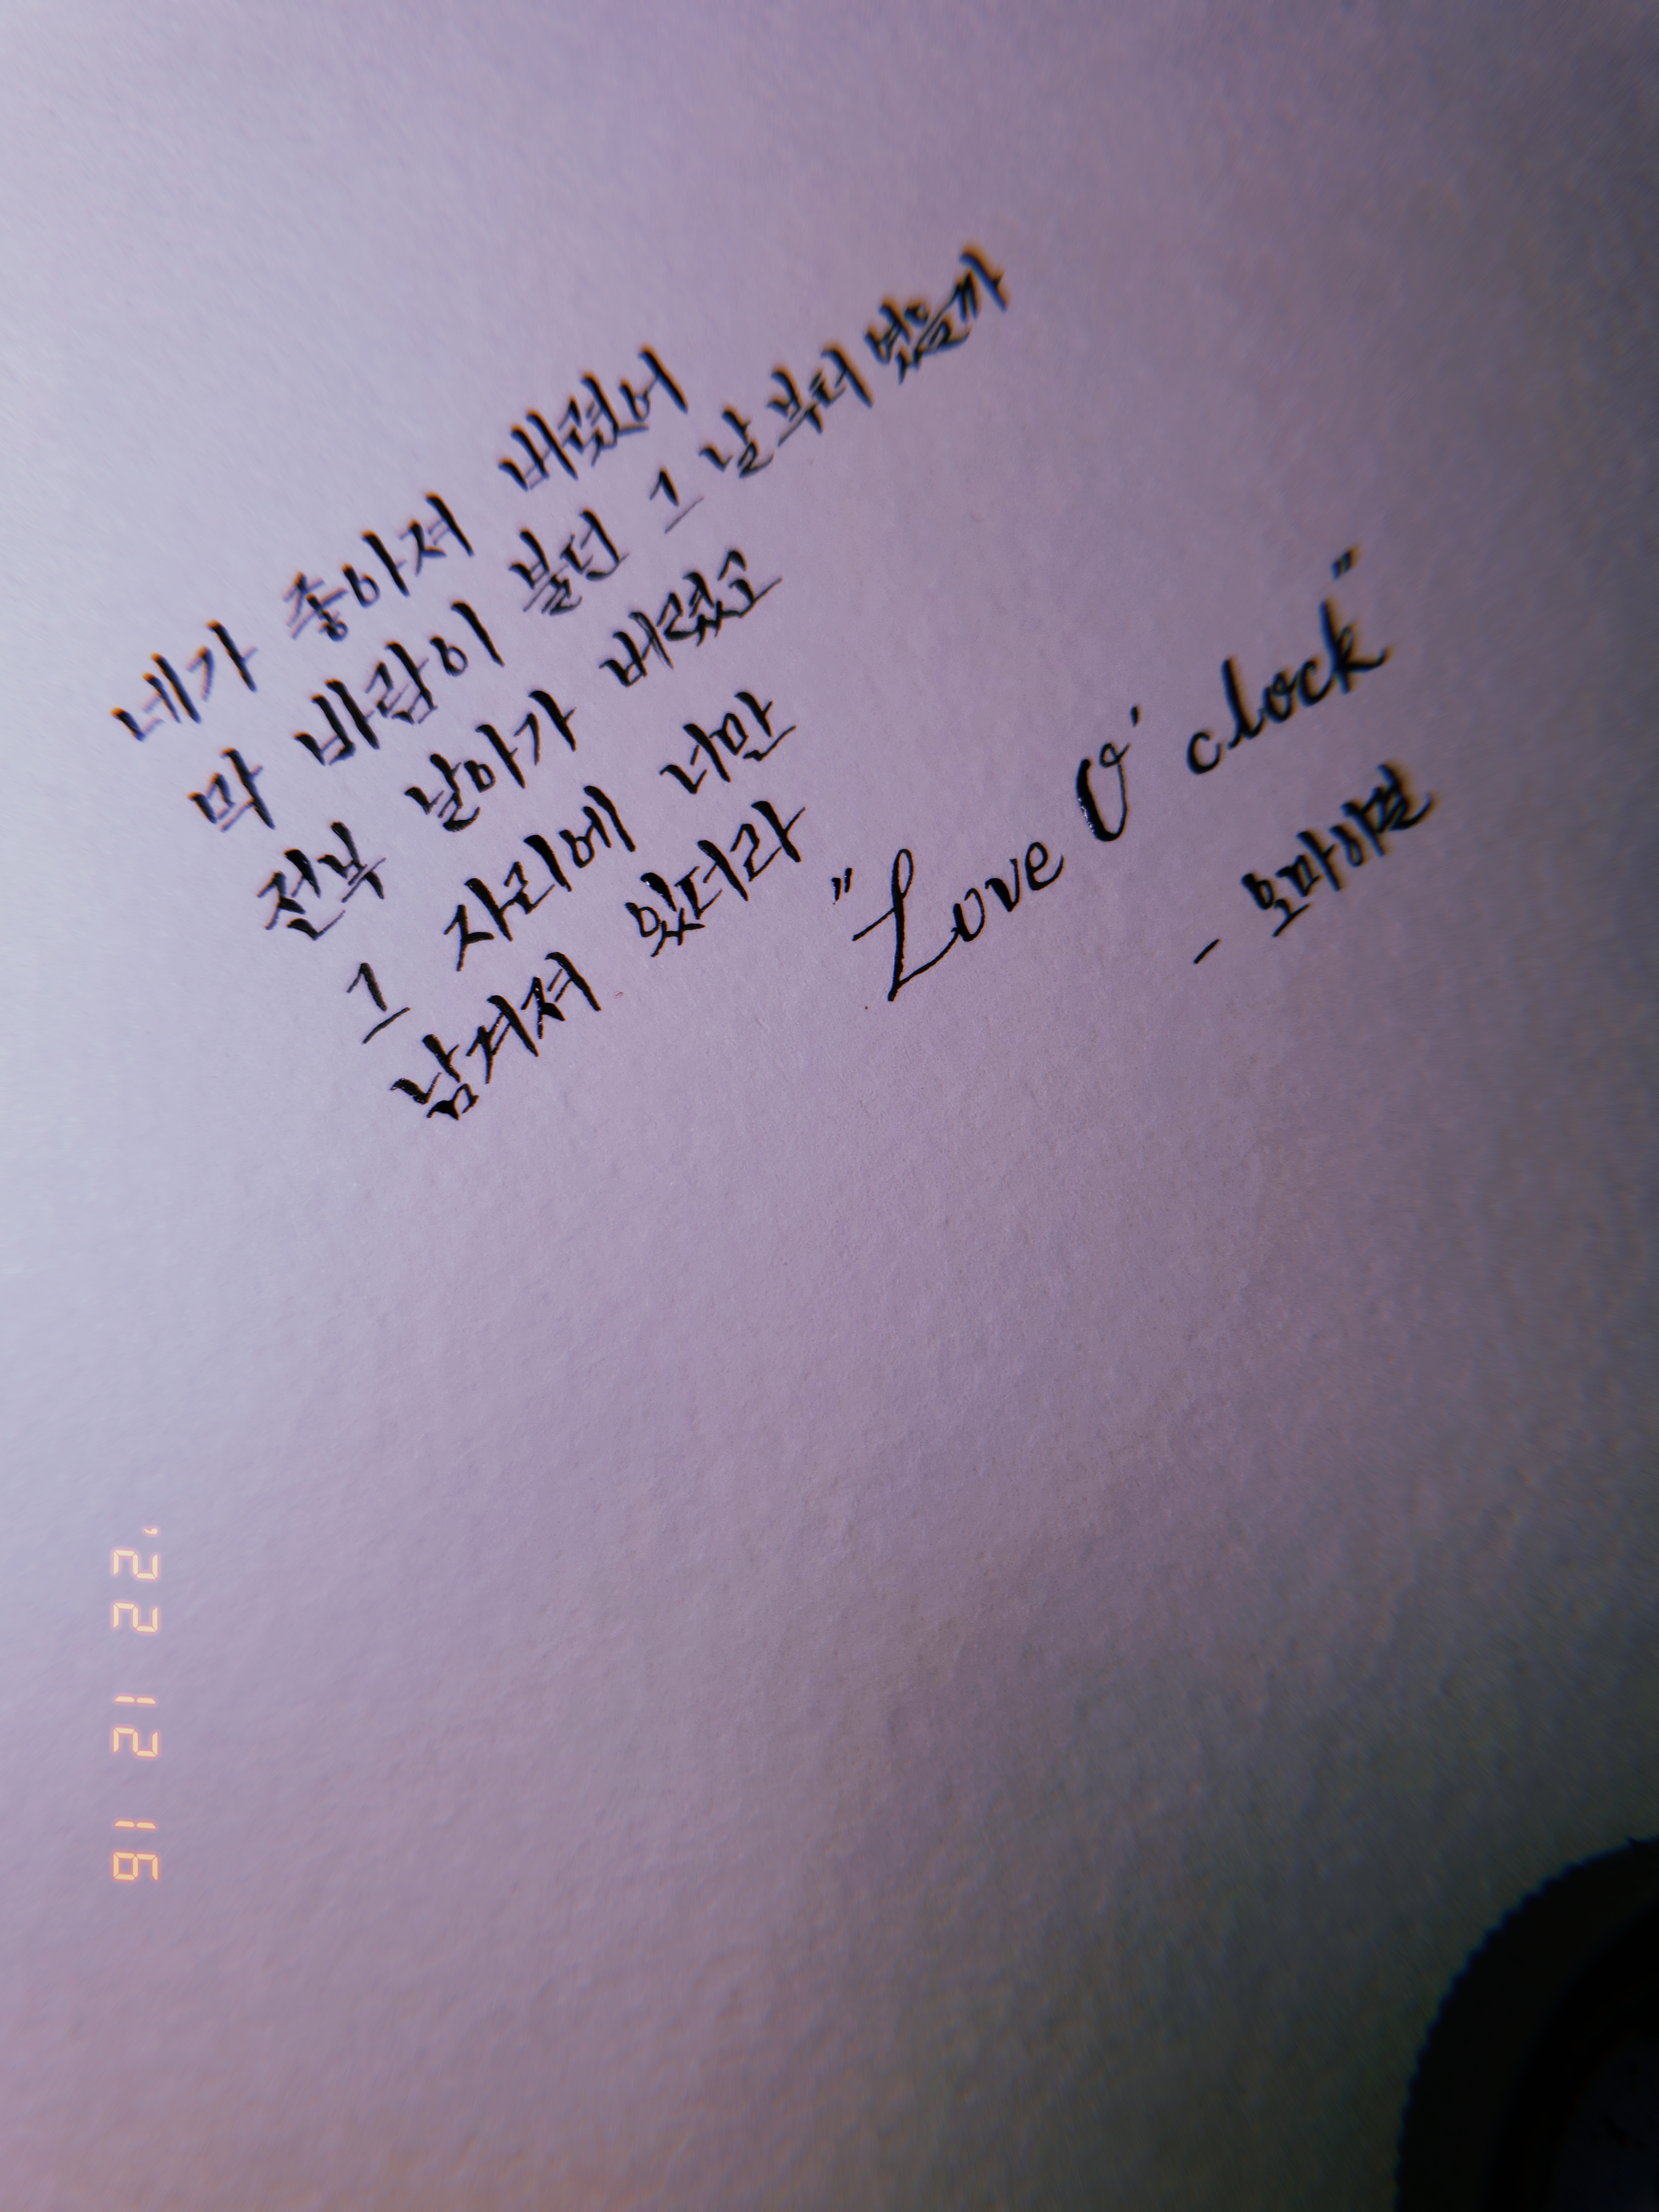 네가 좋아져 버렸어
막 바람이 불던 그 날부터 였을까
전부 날아가 버렸고
그 자리에 너만
남겨져 있더라
"Love O' clock"
- 오마이걸
'22 12 16